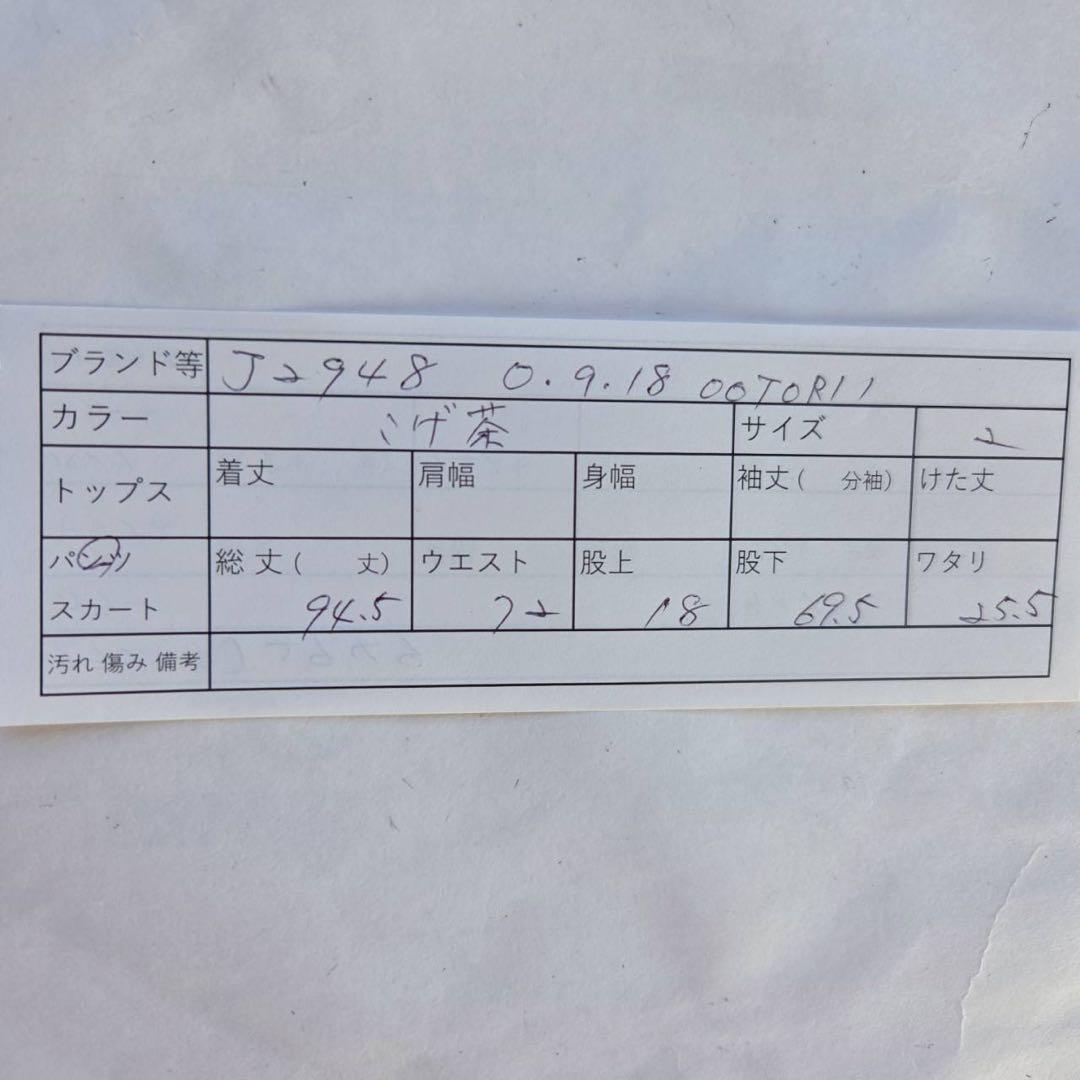 ブランド等 J2948 0.9.18 OOTORII
カラー こげ茶 サイズ 2
トップス 着丈 肩幅 身幅 袖丈( 分袖) けた丈
パンツ 総丈( 丈) ウエスト 股上 股下 ワタリ
スカート 94.5 72 18 69.5 25.5
汚れ 傷み 備考